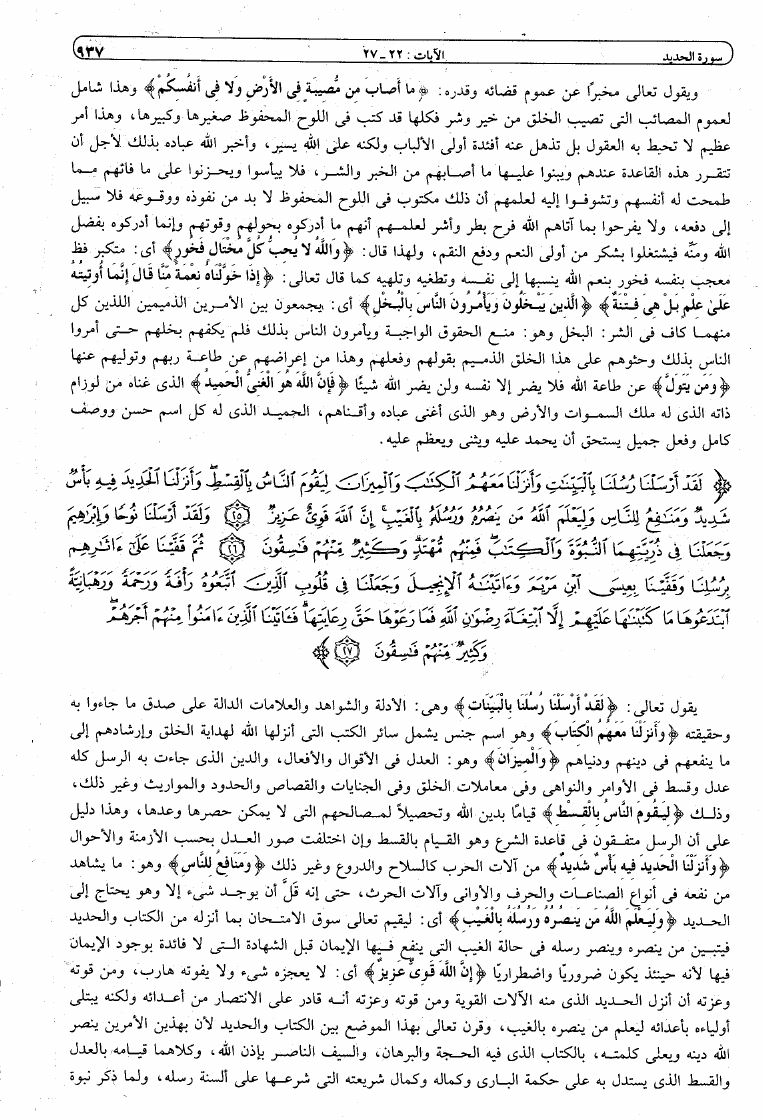 سورة الحديد
الآيات : ٢٢ ـ ٢٧
٩٣٧
ويقول تعالى مخبرًا عن عموم قضائه وقدره: ﴿ مَا أَصَابَ مِن مُّصِيبَةٍ فِى الأَرْضِ وَلا فِى أَنفُسِكُمْ ﴾ وهذا شامل
لعموم المصائب التى تصيب الخلق من خير وشر فكلها قد كتب فى اللوح المحفوظ صغيرها وكبيرها، وهذا أمر
عظيم لا تحيط به العقول بل تذهل عنه أفئدة أولى الألباب ولكنه على الله يسير، وأخبر الله عباده بذلك لأجل أن
تتقرر هذه القاعدة عندهم ويبنوا عليها ما أصابهم من الخير والشر، فلا يبأسوا ويحزنوا على ما فاتهم مما
طمحت له أنفسهم وتشوفوا إليه لعلمهم أن ذلك مكتوب فى اللوح المحفوظ لا بد من نفوذه ووقوعه فلا سبيل
إلى دفعه، ولا يفرحوا بما آتاهم الله فرح بطر وأشر لعلمهم أنهم ما أدركوه بحولهم وقوتهم وإنما أدركوه بفضل
الله ومنّه فيشتغلوا بشكر من أولى النعم ودفع النقم، ولهذا قال: ﴿ وَاللَّهُ لا يُحِبُّ كُلَّ مُخْتَالٍ فَخُورٍ ﴾ أى: متكبر فظ
معجب بنفسه فخور بنعم الله ينسبها إلى نفسه وتطغيه وتلهيه كما قال تعالى: ﴿ إِذَا خَوَّلْنَاهُ نِعْمَةً مِّنَّا قَالَ إِنَّمَا أُوتِيتُهُ
عَلَىٰ عِلْمٍ بَلْ هِىَ فِتْنَةٌ ﴾ ﴿ الَّذِينَ يَبْخَلُونَ وَيَأْمُرُونَ النَّاسَ بِالْبُخْلِ ﴾ أى: يجمعون بين الأمرين الذميمين اللذين كل
منهما كاف فى الشر: البخل وهو: منع الحقوق الواجبة ويأمرون الناس بذلك فلم يكفهم بخلهم حتى أمروا
الناس بذلك وحثوهم على هذا الخلق الذميم بقولهم وفعلهم وهذا من إعراضهم عن طاعة ربهم وتوليهم عنها
﴿ وَمَن يَتَوَلَّ ﴾ عن طاعة الله فلا يضر إلا نفسه ولن يضر الله شيئًا ﴿ فَإِنَّ اللَّهَ هُوَ الْغَنِىُّ الْحَمِيدُ ﴾ الذى غناه من لوازم
ذاته الذى له ملك السموات والأرض وهو الذى أغنى عباده وأقناهم، الحميد الذى له كل اسم حسن ووصف
كامل وفعل جميل يستحق أن يحمد عليه ويثنى ويعظم عليه.
﴿ لَقَدْ أَرْسَلْنَا رُسُلَنَا بِالْبَيِّنَاتِ وَأَنزَلْنَا مَعَهُمُ الْكِتَابَ وَالْمِيزَانَ لِيَقُومَ النَّاسُ بِالْقِسْطِ وَأَنزَلْنَا الْحَدِيدَ فِيهِ بَأْسٌ
شَدِيدٌ وَمَنَافِعُ لِلنَّاسِ وَلِيَعْلَمَ اللَّهُ مَن يَنصُرُهُ وَرُسُلَهُ بِالْغَيْبِ إِنَّ اللَّهَ قَوِيٌّ عَزِيزٌ ﴿٢٥﴾ وَلَقَدْ أَرْسَلْنَا نُوحًا وَإِبْرَاهِيمَ
وَجَعَلْنَا فِي ذُرِّيَّتِهِمَا النُّبُوَّةَ وَالْكِتَابَ فَمِنْهُم مُّهْتَدٍ وَكَثِيرٌ مِّنْهُمْ فَاسِقُونَ ﴿٢٦﴾ ثُمَّ قَفَّيْنَا عَلَىٰ ءَاثَارِهِم
بِرُسُلِنَا وَقَفَّيْنَا بِعِيسَى ابْنِ مَرْيَمَ وَءَاتَيْنَاهُ الْإِنجِيلَ وَجَعَلْنَا فِي قُلُوبِ الَّذِينَ اتَّبَعُوهُ رَأْفَةً وَرَحْمَةً وَرَهْبَانِيَّةً
ابْتَدَعُوهَا مَا كَتَبْنَاهَا عَلَيْهِمْ إِلَّا ابْتِغَاءَ رِضْوَانِ اللَّهِ فَمَا رَعَوْهَا حَقَّ رِعَايَتِهَا فَـَٔاتَيْنَا الَّذِينَ ءَامَنُوا مِنْهُمْ أَجْرَهُمْ
وَكَثِيرٌ مِّنْهُمْ فَاسِقُونَ ﴿٢٧﴾ ﴾
يقول تعالى: ﴿ لَقَدْ أَرْسَلْنَا رُسُلَنَا بِالْبَيِّنَاتِ ﴾ وهى: الأدلة والشواهد والعلامات الدالة على صدق ما جاءوا به
وحقيقته ﴿ وَأَنزَلْنَا مَعَهُمُ الْكِتَابَ ﴾ وهو اسم جنس يشمل سائر الكتب التى أنزلها الله لهداية الخلق وإرشادهم إلى
ما ينفعهم فى دينهم ودنياهم ﴿ وَالْمِيزَانَ ﴾ وهو: العدل فى الأقوال والأفعال، والدين الذى جاءت به الرسل كله
عدل وقسط فى الأوامر والنواهى وفى معاملات الخلق وفى الجنايات والقصاص والحدود والمواريث وغير ذلك،
وذلك ﴿ لِيَقُومَ النَّاسُ بِالْقِسْطِ ﴾ قيامًا بدين الله وتحصيلاً لمصالحهم التى لا يمكن حصرها وعدها، وهذا دليل
على أن الرسل متفقون فى قاعدة الشرع وهو القيام بالقسط وإن اختلفت صور العدل بحسب الأزمنة والأحوال
﴿ وَأَنزَلْنَا الْحَدِيدَ فِيهِ بَأْسٌ شَدِيدٌ ﴾ من آلات الحرب كالسلاح والدروع وغير ذلك ﴿ وَمَنَافِعُ لِلنَّاسِ ﴾ وهو: ما يشاهد
من نفعه فى أنواع الصناعات والحرف والأوانى وآلات الحرث، حتى إنه قلَّ أن يوجد شىء إلا وهو يحتاج إلى
الحديد ﴿ وَلِيَعْلَمَ اللَّهُ مَن يَنصُرُهُ وَرُسُلَهُ بِالْغَيْبِ ﴾ أى: ليقيم تعالى سوق الامتحان بما أنزله من الكتاب والحديد
فيتبين من ينصره وينصر رسله فى حالة الغيب التى ينفع فيها الإيمان قبل الشهادة التى لا فائدة بوجود الإيمان
فيها لأنه حينئذ يكون ضروريًا واضطراريًا ﴿ إِنَّ اللَّهَ قَوِىٌّ عَزِيزٌ ﴾ أى: لا يعجزه شىء ولا يفوته هارب، ومن قوته
وعزته أن أنزل الحديد الذى منه الآلات القوية ومن قوته وعزته أنه قادر على الانتصار من أعدائه ولكنه يبتلى
أولياءه بأعدائه ليعلم من ينصره بالغيب، وقرن تعالى بهذا الموضع بين الكتاب والحديد لأن بهذين الأمرين ينصر
الله دينه ويعلى كلمته، بالكتاب الذى فيه الحجة والبرهان، والسيف الناصر بإذن الله، وكلاهما قيامه بالعدل
والقسط الذى يستدل به على حكمة البارى وكماله وكمال شريعته التى شرعها على ألسنة رسله، ولما ذكر نبوة